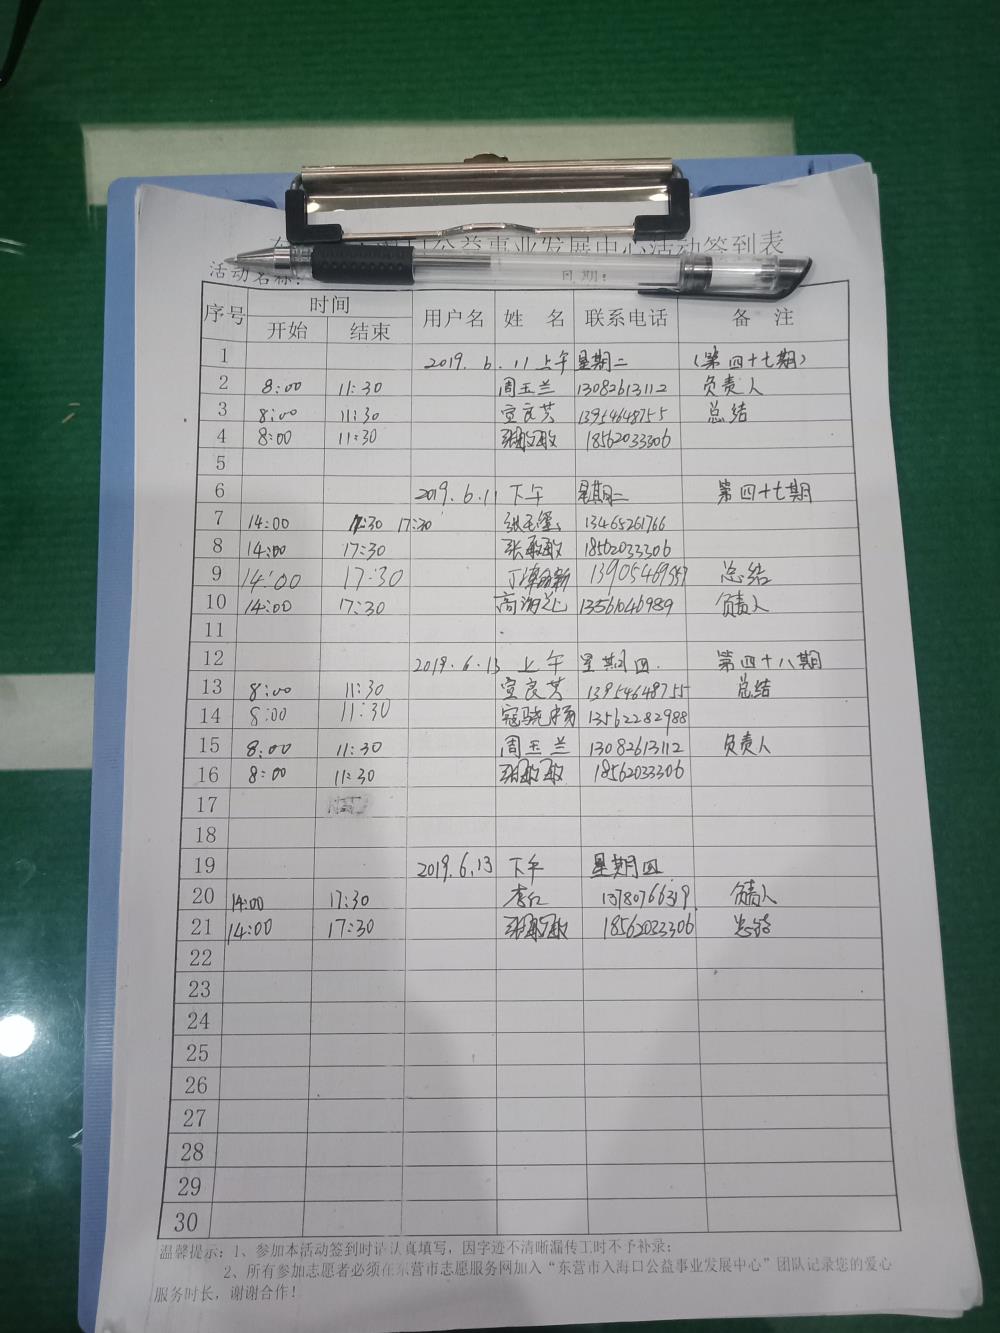 口公益事业发展中心活动签到表
活动名称： 日期：
序号 时间 用户名 姓 名 联系电话 备 注
开始 结束
1 2019.6.11 上午 星期二 (第四十七期)
2 8:00 11:30 周玉兰 13082613112 负责人
3 8:00 11:30 宣良芹 13954648755 总结
4 8:00 11:30 张敏敏 18562033306
5
6 2019.6.11 下午 星期二 第四十七期
7 14:00 17:30 张玉 13465261766
8 14:00 17:30 张敏敏 18562033306
9 14:00 17:30 总结
10 14:00 17:30 高湘 13561046989 负责人
11
12 2019.6.13 上午 星期四. 第四十八期
13 8:00 11:30 宣良芹 13954648755 总结
14 8:00 11:30 寇骁 13562282988
15 8:00 11:30 周玉兰 13082613112 负责人
16 8:00 11:30 张敏敏 18562033306
17
18
19 2019.6.13 下午 星期四
20 14:00 17:30 李红 13780766319 负责人
21 14:00 17:30 张敏敏 18562033306 总结
22
23
24
25
26
27
28
29
30
温馨提示：1、参加本活动签到时请认真填写，因字迹不清晰漏传工时不予补录；
2、所有参加志愿者必须在东营市志愿服务网加入“东营市入海口公益事业发展中心”团队记录您的爱心
服务时长，谢谢合作！